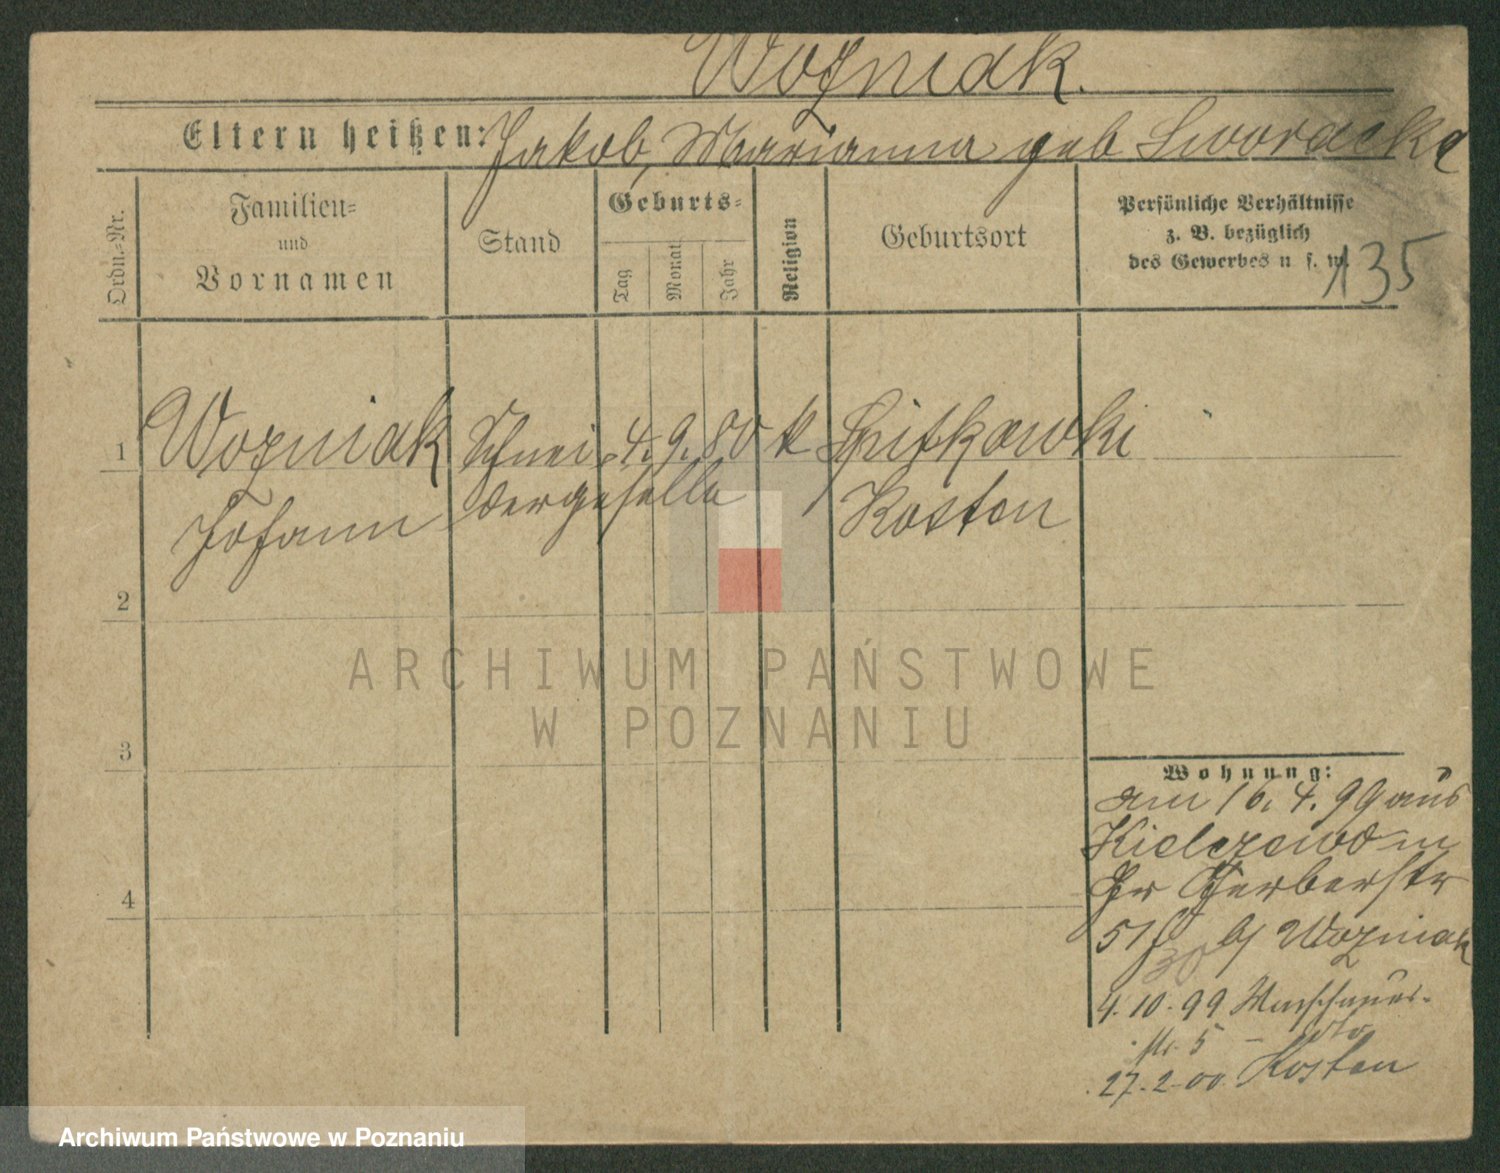 Wozniak.
Eltern heißen: Jakob, Marianna geb Sworacka
Ordn.-Nr.
Familien-
und
Vornamen
Stand
Geburts-
Tag
Monat
Jahr
Religion
Geburtsort
Persönliche Verhältnisse
z. B. bezüglich
des Gewerbes u. s. w.
135
1 Wozniak Schnei- 4. 9. 80 k Spitkowki
Johann dergeselle Kosten
2
3
4
Wohnung:
am 16. 4. 99 aus
Kielczewo in
Gerberstr
51 b/ Wozniak
30
4. 10. 99 Warschauer-
str. 5 -
27. 2. 00 Kosten
ARCHIWUM PAŃSTWOWE
W POZNANIU
Archiwum Państwowe w Poznaniu